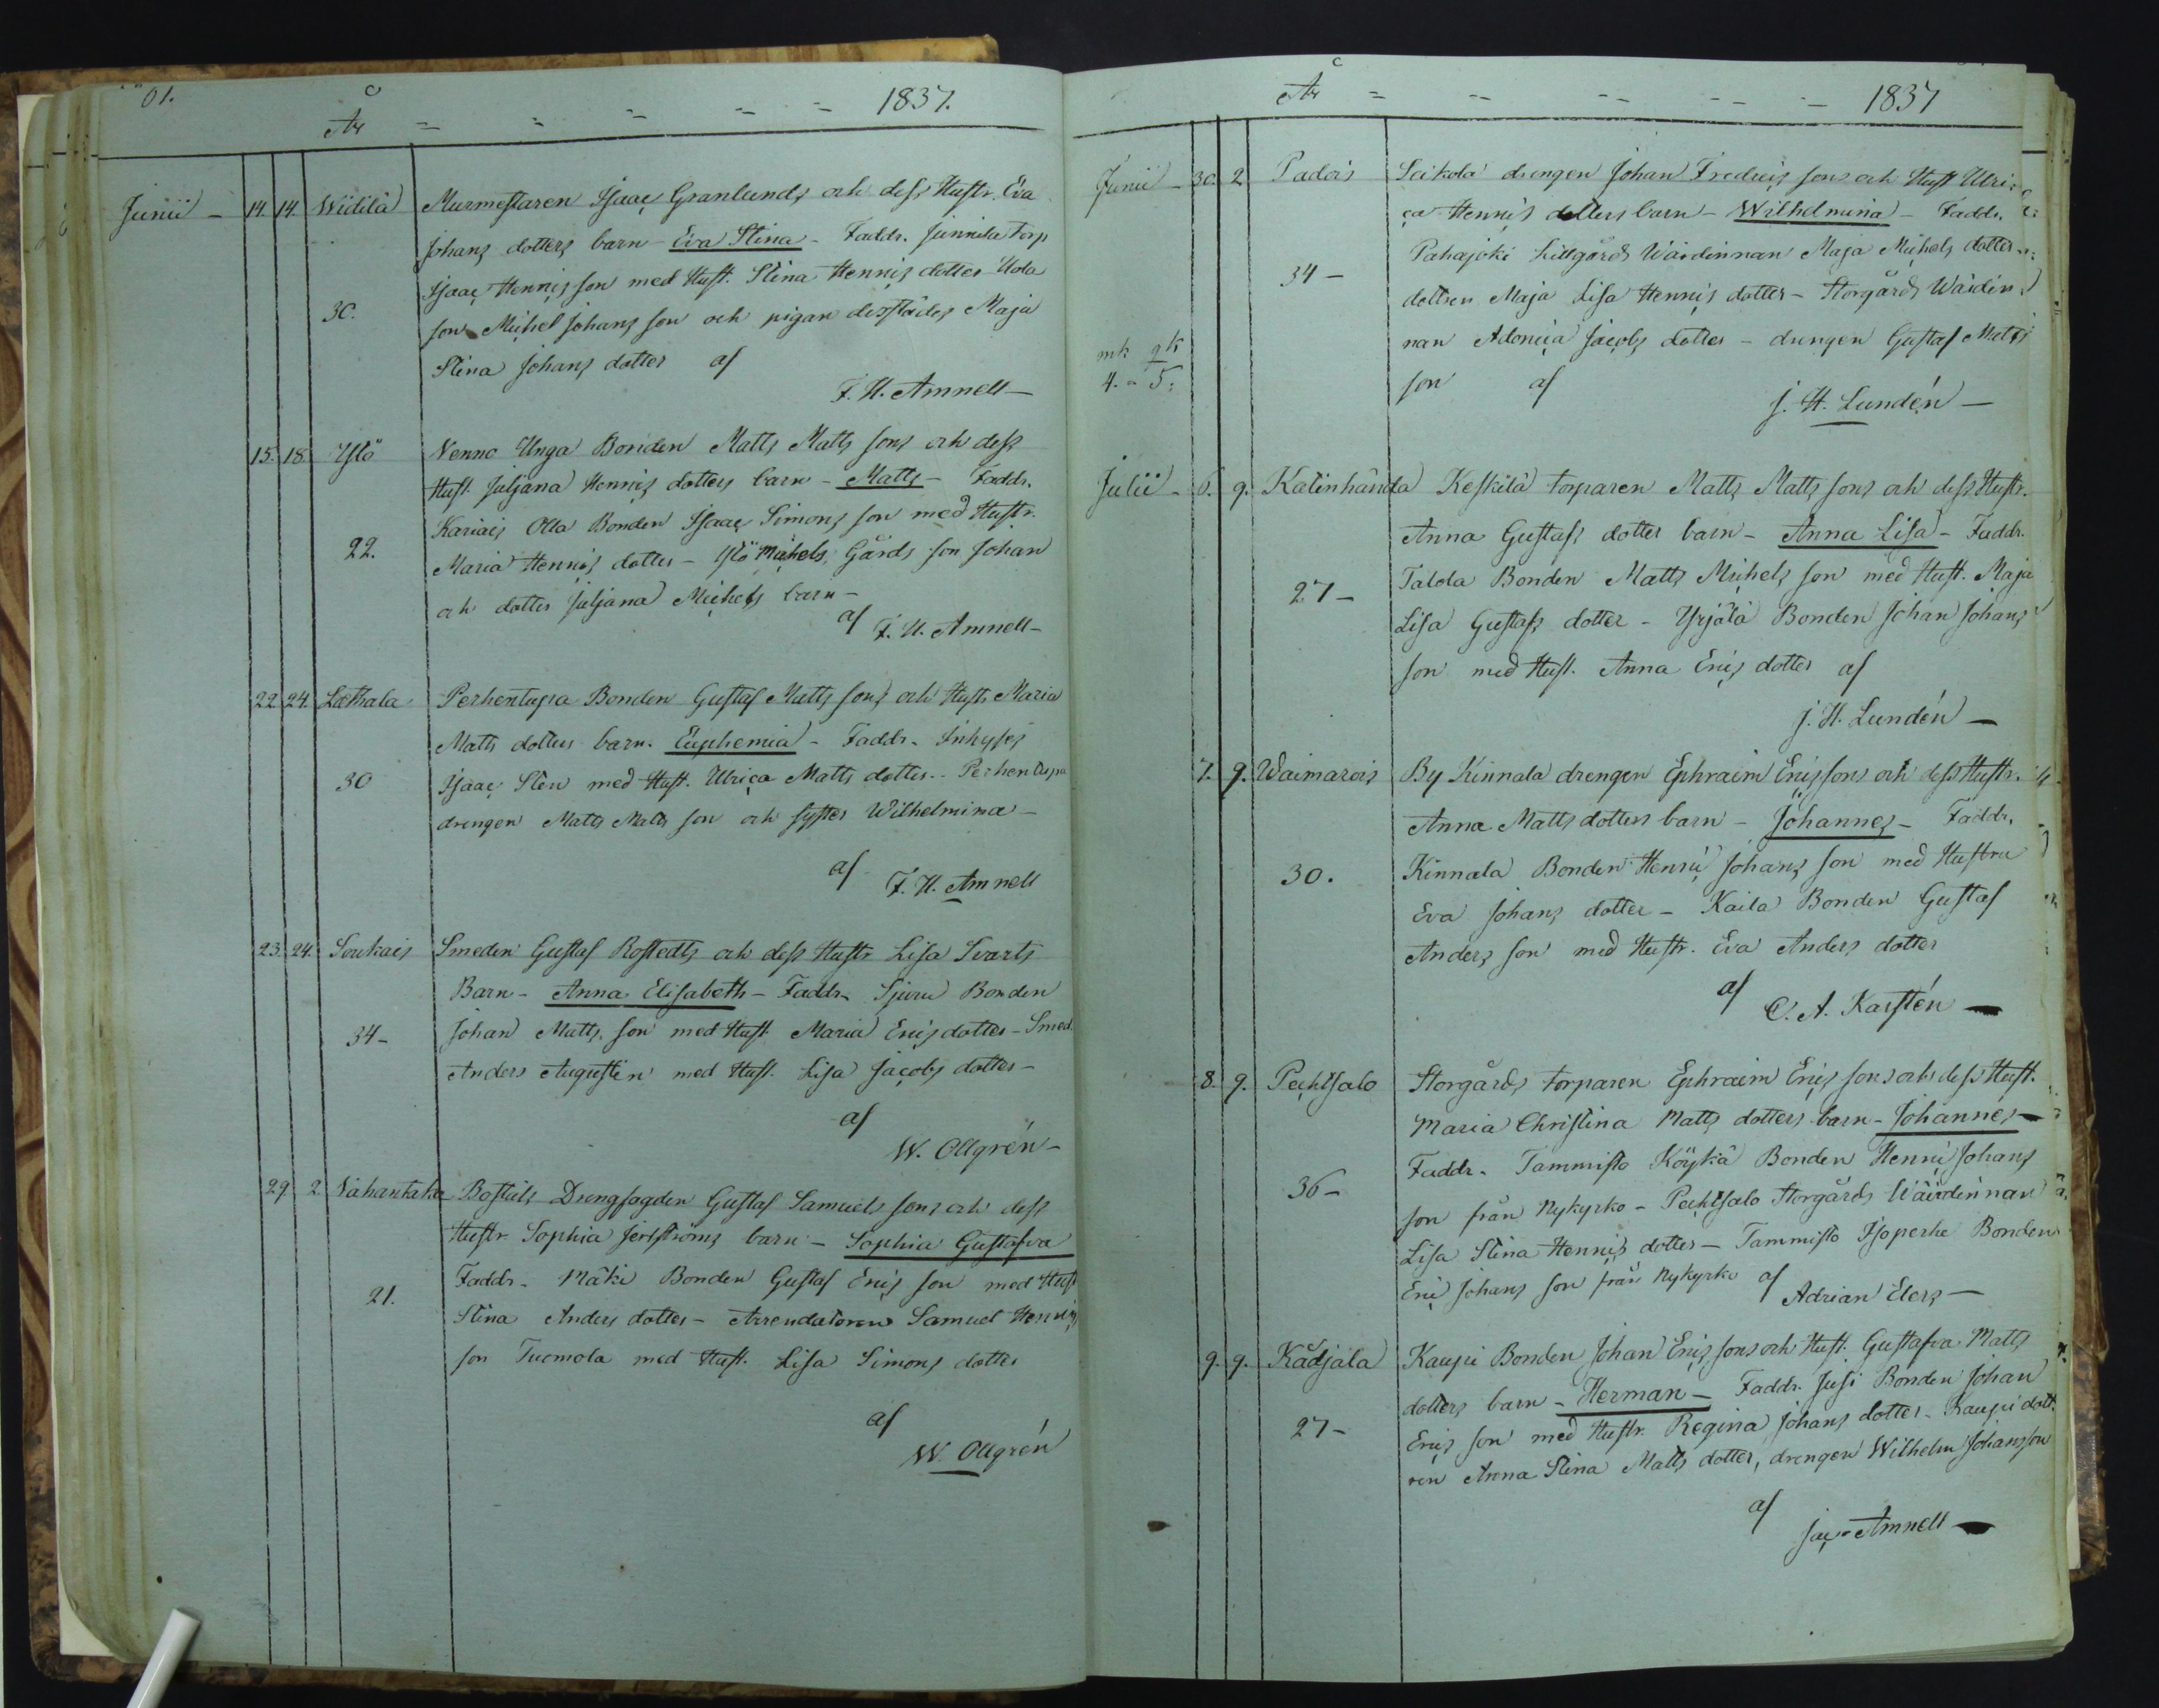 01.
År - - - - - 1837.
Junii - 14. 14. Widilä Murmestaren Isaac Granlunds och dess Hustr. Eva
Johans dotters barn - Eva Stina - Faddr. Junnila Torp
Isaac Henrics son med Hust. Stina Henrics dotter - Uola
30.
son Michel Johans son och pigan desstädes Maja
Stina Johans dotter af
F. H. Amnell -
15. 18. Ylö Nenno Unga Bonden Matts Matts sons och dess
Hust. Juljana Henrics dotters barn - Matts - Faddr.
Kariais Olla Bonden Isaac Simons son med Hustr.
22.
Maria Henrics dotter - Ylö Michels Gårds son Johan
och dotter Juljana Michels barn -
af F. H. Amnell -
22 24. Lethala Perhentupa Bonden Gustaf Matts sons och Hustr Maria
Matts dotters barn. Euphemia - Faddr. Inhyses
30
Isaac Sten med Hust. Ulrica Matts dotter - Perhentupa
drengen Matts Matts son och syster Wilhelmina -
af F. H. Amnell
23. 24. Soukais Smeden Gustaf Rostedts och dess Hustr Lisa Svarts
Barn - Anna Elisabeth - Faddr. Sjuru Bonden
34 -
Johan Matts son med Hust. Maria Erics dotter - Smed.
Anders Augustin med Hust. Lisa Jacobs dotter -
af
W. Ollgrén -
29 2 Nähantaka Bostäls Drengfogden Gustaf Samuels sons och dess
Hustr. Sophia Jerlströms barn - Sophia Gustafva
21.
Faddr. Mäki Bonden Gustaf Erics son med Hust
Stina Anders dotter - Arrendatoren Samuel Henrics
son Tuomola med Hust. Lisa Simons dotter
af
W. Ollgrén
År - - - - - 1837
Junii - 30. 2 Padois Seikola drengen Johan Fredrics sons och Hust Ulri-
ca Henrics dotters barn - Wilhelmina - Faddr.
Pahajoki Lillgårds Wärdinnan Maja Michels dotter
34 -
dottren Maja Lisa Henrics dotter - Storgårds Wärdin
nan Adonica Jacobs dotter - drengen Gustaf Matts
mk qk
4. - 5.
son af
J. H. Lundén -
Julii - 6. 9. Katinhända Keskilä torparen Matts Matts sons och dess Hustr.
Anna Gustafs dotter barn - Anna Lisa - Faddr.
27 -
Talola Bonden Matts Michels son med Hust. Maja
Lisa Gustafs dotter - Yrjälä Bonden Johan Johans
son med Hust. Anna Erics dotter af
J. H. Lundén -
7. 9. Waimarois By Kinnala drengen Ephraim Erics sons och dess Hustr.
Anna Matts dotters barn - Johannes - Faddr.
30.
Kinnala Bonden Henric Johans son med Hustru
Eva Johans dotter - Kaila Bonden Gustaf
Anders son med Hustr. Eva Anders dotter
af C. A. Karstén -
8. 9. Pechtsalo Storgårds torparen Ephraim Erics sons och dess Hust.
Maria Christina Matts dotters barn - Johannes -
36 -
Faddr. Tammisto Köykä Bonden Henric Johans
son från Nykyrko - Pechtsalo Storgårds Wärdinnan
Lisa Stina Henrics dotter - Tammisto Isoperhe Bonden
Eric Johans son från Nykyrko af Adrian Elers -
9. 9. Kädjälä Kaupi Bonden Johan Erics sons och Hust. Gustafva Matts
dotters barn - Herman - Faddr. Jusi Bonden Johan
27 -
Erics son med Hustr. Regina Johans dotter - Kaupi dott.
ren Anna Stina Matts dotter, drengen Wilhelm Johansson
af Jac. Amnell -